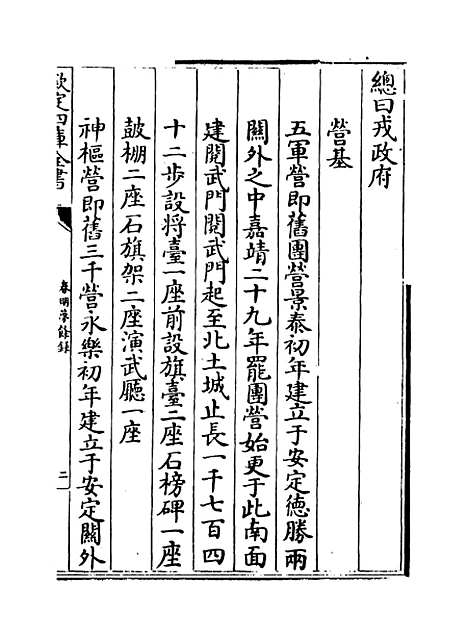 總曰戎政府
營基
五軍營即舊團營景泰初年建立于安定德勝兩
關外之中嘉靖二十九年罷團營始更于此南面
建閱武門閱武門起至北土城止長一千七百四
十二步設将臺一座前設旗臺二座石榜碑一座
鼓棚二座石旗架二座演武廳一座
神樞營即舊三千營永樂初年建立于安定關外
欽定四庫全書
春明夢餘錄
二